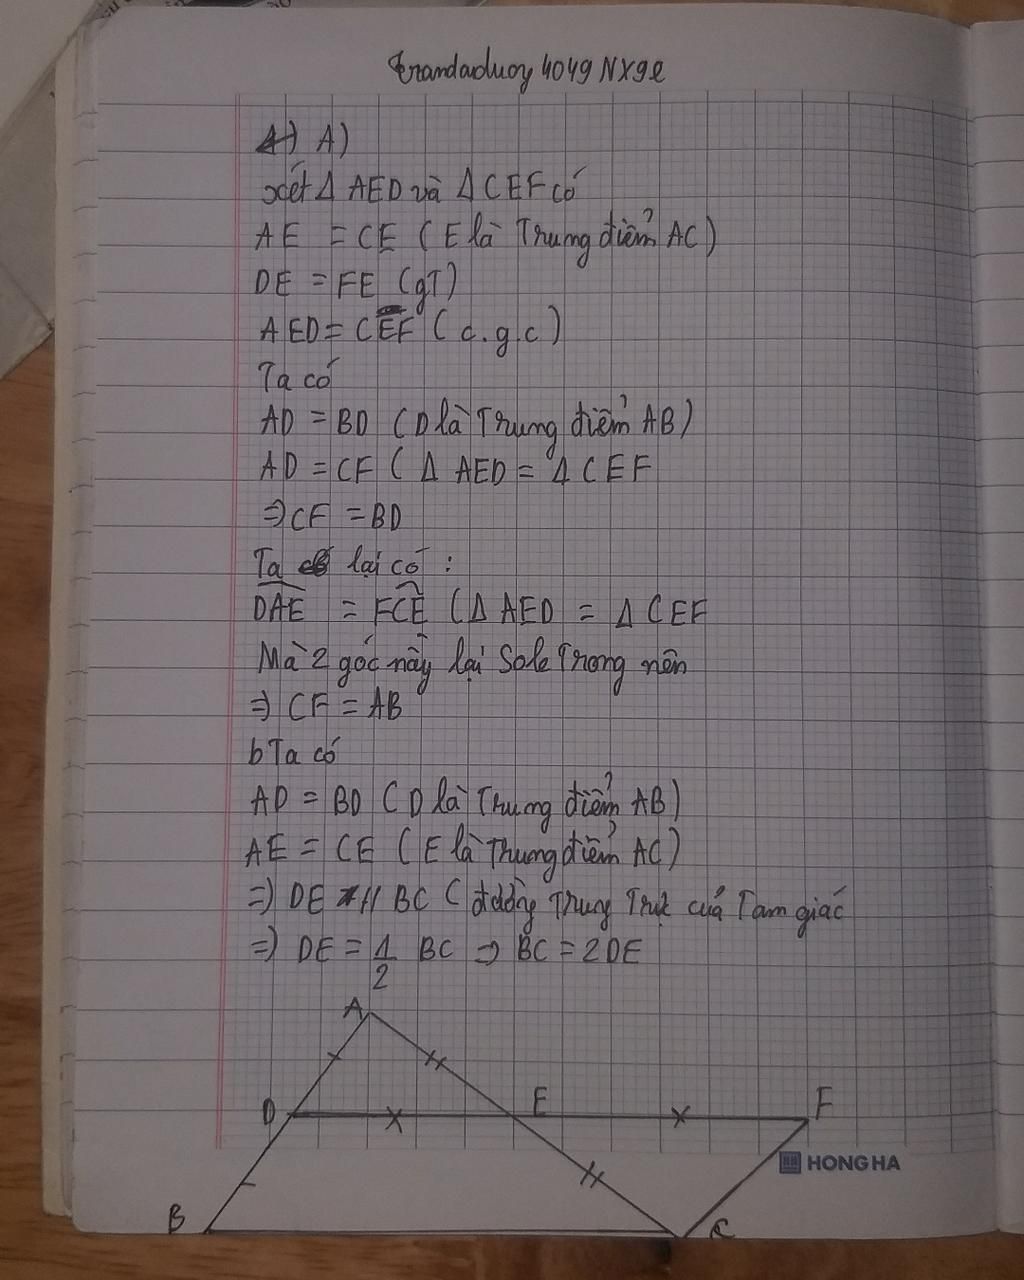 trandaduoy 4049 NX9e
A)
xét Δ AED và Δ CEF có
AE = CE (E là Trung điểm AC)
DE = FE (gT)
AED = CEF (c.g.c)
Ta có
AD = BD (D là Trung điểm AB)
AD = CF (Δ AED = Δ CEF
⇒ CF = BD
Ta lại có :
DAE = FCE (Δ AED = Δ CEF
Mà 2 góc này lại Sole Trong nên
⇒ CF = AB
b Ta có
AD = BD (D là Trung điểm AB)
AE = CE (E là Trung điểm AC)
⇒ DE // BC (đường Trung Trực của Tam giác
⇒ DE = 1/2 BC ⇒ BC = 2DE
A
D E F
HONG HA
B C